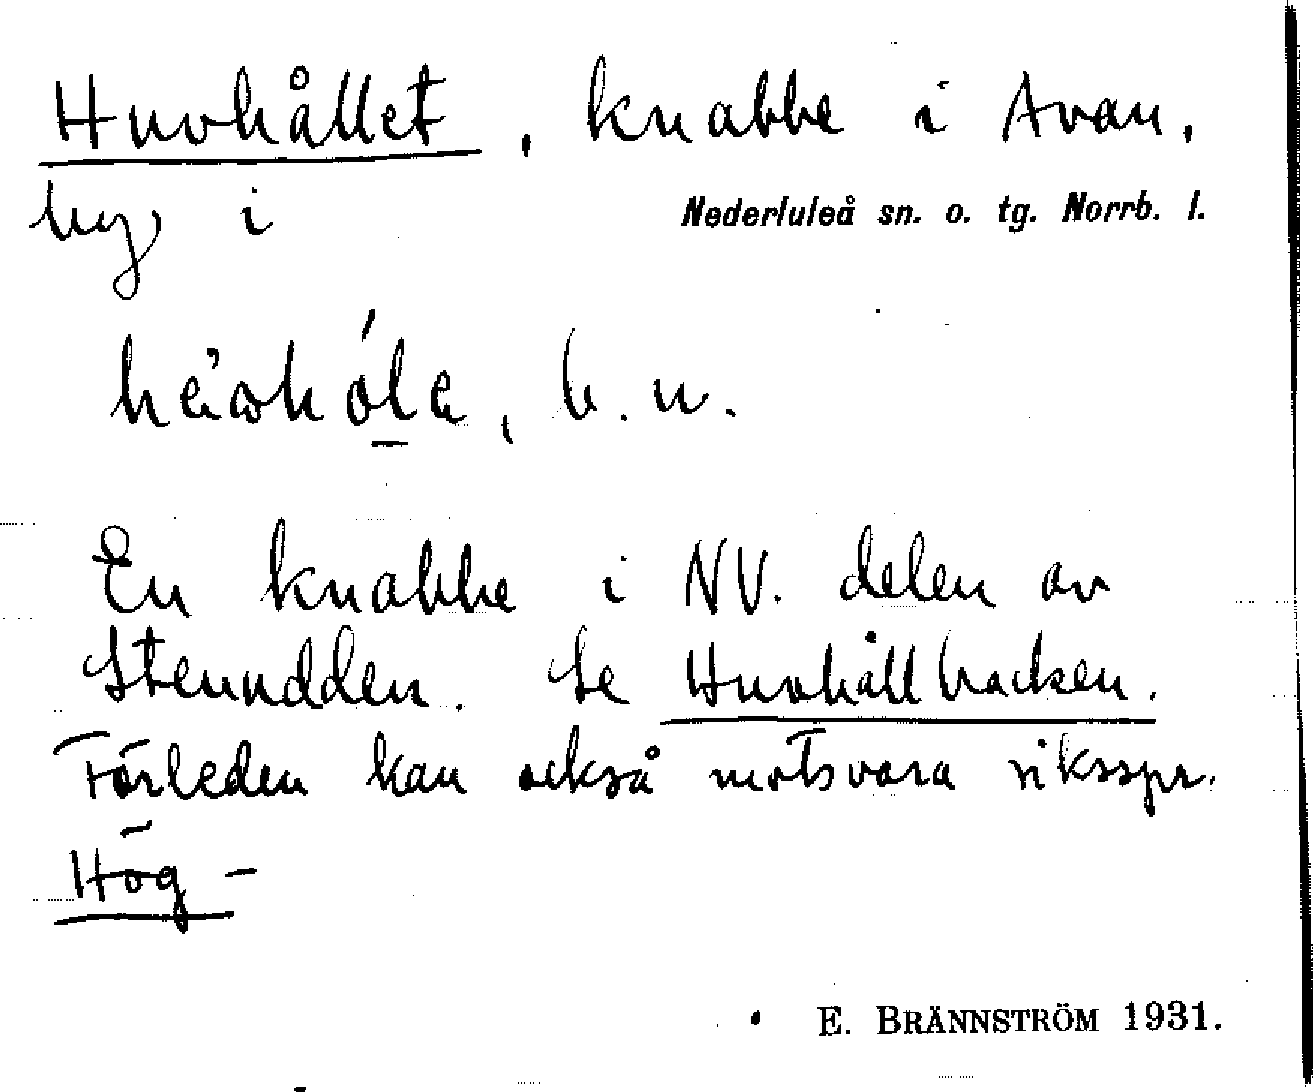 Huvhållet, knabbe i Avan,
by i Nederluleå sn. o. tg. Norrb. l.
b. n.
En knabbe i NV. delen av
Stenudden. Se Huvhållbacken.
Förleden kan också motsvara riksspr.
Hög-
E. BRÄNNSTRÖM 1931.